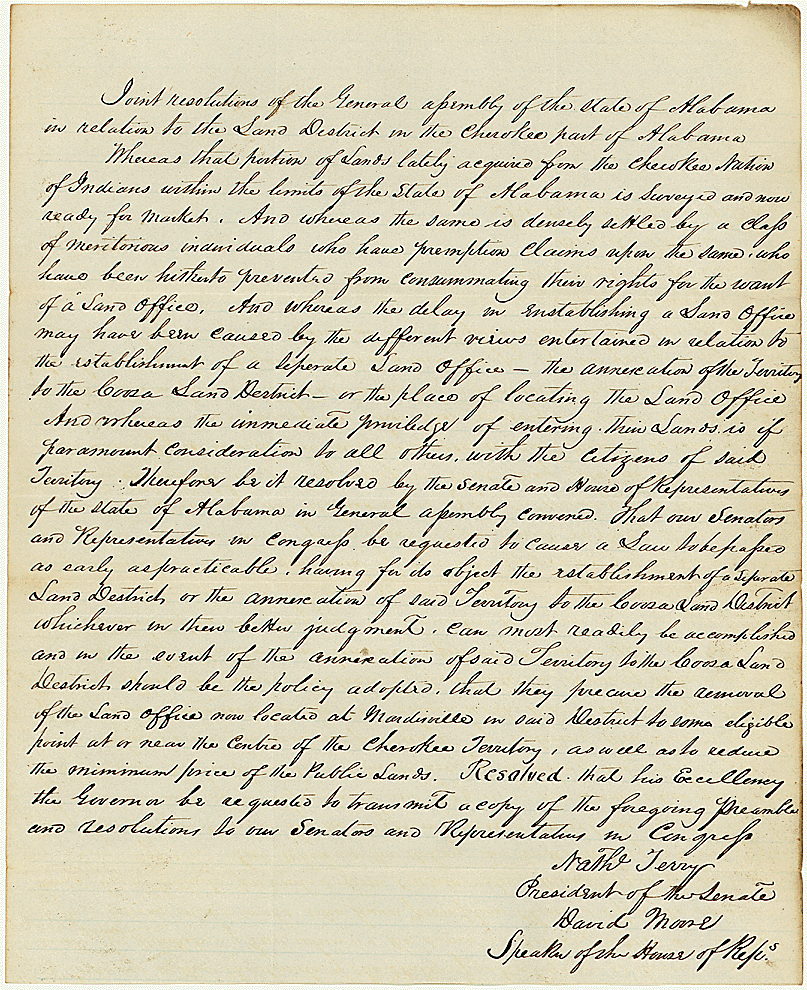 Joint resolutions of the General assembly of the state of Alabama
in relation to the Land District in the Cherokee part of Alabama
Whereas that portion of Lands lately acquired from the Cherokee Nation
of Indians within the limits of the State of Alabama is Surveyed and now
ready for market. And whereas the same is densely settled by a class
of meritorious individuals who have premption Claims upon the same, who
have been hitherto prevented from consummating their rights for the want
of a Land Office. And whereas the delay in enstablishing a Land Office
may have been caused by the different views entertained in relation to
the establishment of a seperate Land Office — the annexation of the Territory
to the Coosa Land District — or the place of locating the Land Office
And whereas the immediate priviledge of entering their Lands is if
paramount consideration to all others, with the citizens of said
Territory. Therefore be it resolved by the Senate and House of Representatives
of the state of Alabama in General assembly convened. That our Senators
and Representatives in Congress be requested to cause a Law to be passed
as early as practicable, having for its object the establishment of a seperate
Land District, or the annexation of said Territory to the Coosa Land District
whichever in their better judgment, can most readily be accomplished
and in the event of the annexation of said Territory to the Coosa Land
District should be the policy adopted, that they procure the removal
of the Land Office now located at Mardisville in said District to some eligible
point at or near the Centre of the Cherokee Territory, as well as to reduce
the minimum price of the Public Lands. Resolved that his Excellency
the Governor be requested to transmit a copy of the foregoing Preamble
and resolutions to our Senators and Representatives in Congress
Nathl Terry
President of the Senate
David Moore
Speaker of the House of Reps.